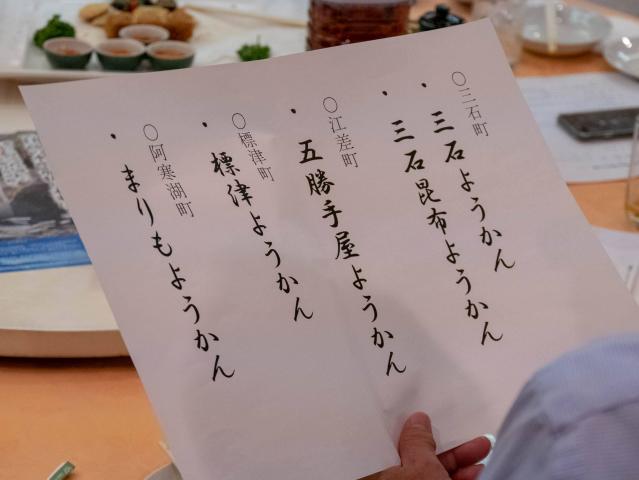 ○三石町
・三石ようかん
・三石昆布ようかん
○江差町
・五勝手屋ようかん
○標津町
・標津ようかん
○阿寒湖町
・まりもようかん